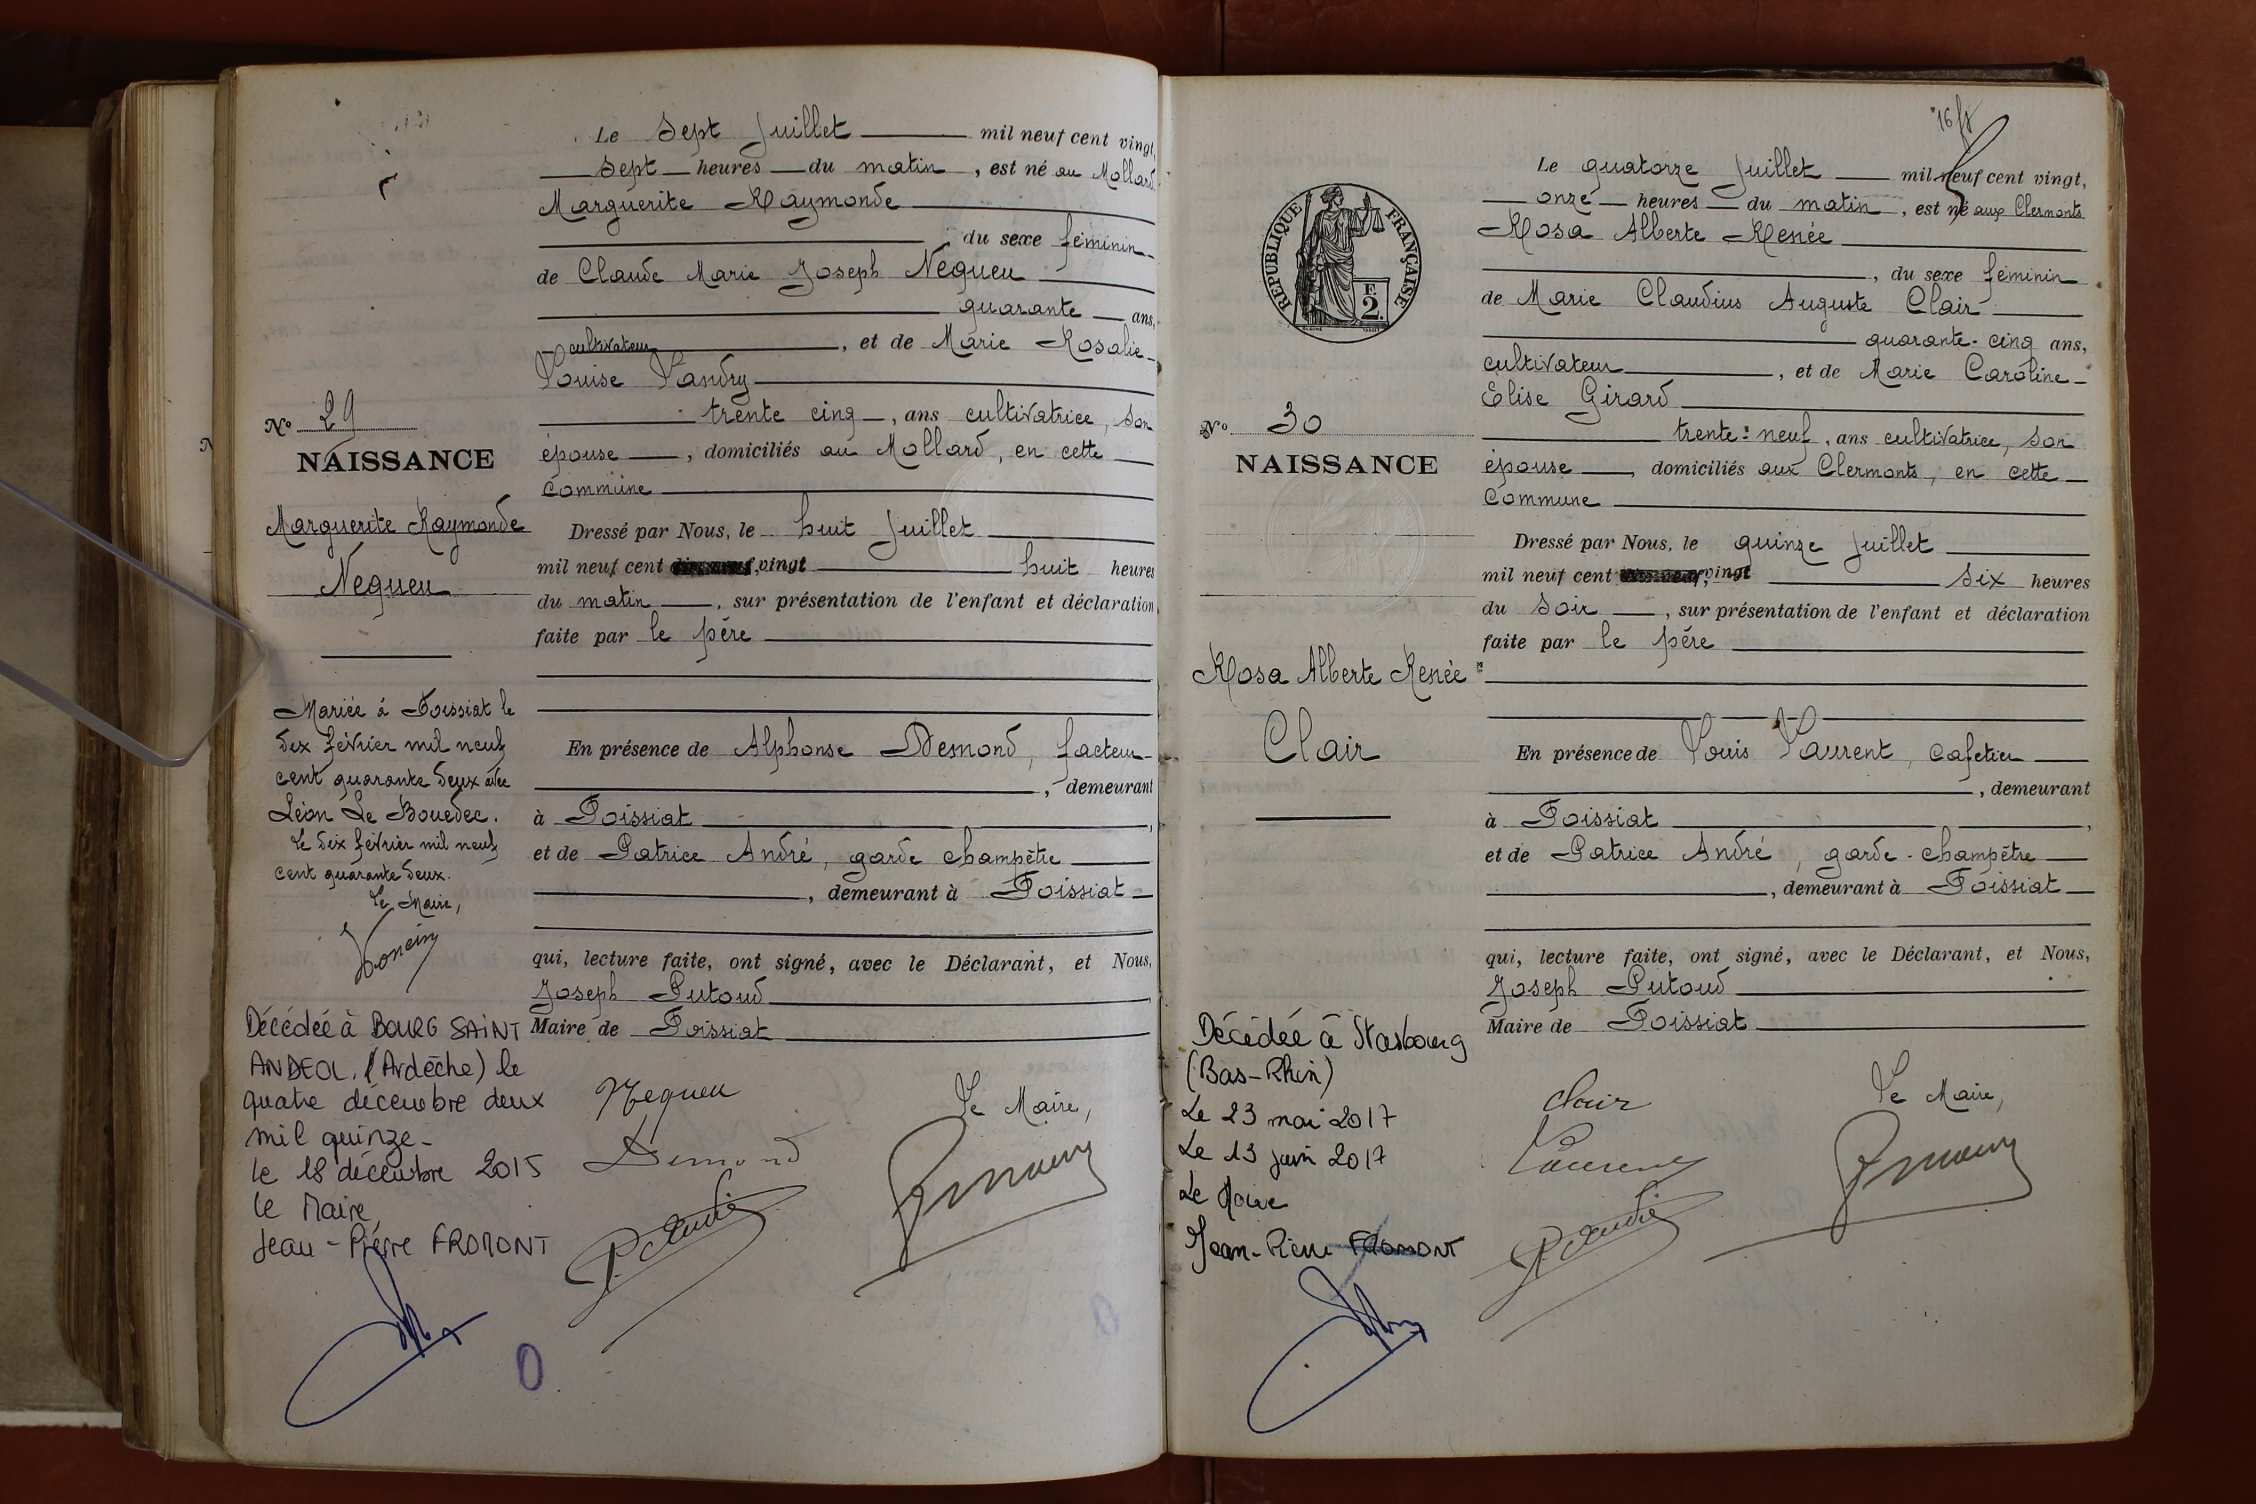 Le Sept Juillet mil neuf cent vingt,
sept heures du matin, est né au Mollard
Marguerite Raymonde
, du sexe féminin
de Claude Marie Joseph Nequeu
quarante ans,
cultivateur, et de Marie Rosalie
Louise Landry
trente cinq, ans cultivatrice, son
épouse, domiciliés au Mollard, en cette
commune
Nº 29
NAISSANCE
Marguerite Raymonde
Nequeu
Dressé par Nous, le huit Juillet
mil neuf cent vingt huit heures
du matin, sur présentation de l'enfant et déclaration
faite par le père
Mariée à Foissiat le
dix février mil neuf
cent quarante deux avec
Léon Le Bouedec.
Le dix février mil neuf
cent quarante deux.
Le Maire,
En présence de Alphonse Demond, facteur
, demeurant
à Foissiat,
et de Patrice André, garde champêtre
, demeurant à Foissiat
qui, lecture faite, ont signé, avec le Déclarant, et Nous,
Joseph Putoud,
Maire de Foissiat
Décédée à BOURG SAINT
ANDEOL. (Ardèche) le
quatre décembre deux
mil quinze-
le 18 décembre 2015
le Maire,
Jean-Pierre FROMONT
Nequeu
Demond
P. André
Le Maire,
16 f
RÉPUBLIQUE FRANÇAISE
F.
2.
Le quatorze Juillet mil neuf cent vingt,
onze heures du matin, est né aux Clermonts
Rosa Alberte Renée
, du sexe féminin
de Marie Claudius Auguste Clair
quarante-cinq ans,
cultivateur, et de Marie Caroline
Elise Girard
trente-neuf, ans cultivatrice, son
épouse, domiciliés aux Clermonts, en cette
commune
Nº 30
NAISSANCE
Dressé par Nous, le quinze Juillet
mil neuf cent vingt six heures
du soir, sur présentation de l'enfant et déclaration
faite par le père
Rosa Alberte Renée
Clair
En présence de Louis Laurent, cafetier
, demeurant
à Foissiat,
et de Patrice André, garde-champêtre
, demeurant à Foissiat
qui, lecture faite, ont signé, avec le Déclarant, et Nous,
Joseph Putoud
Maire de Foissiat
Décédée à Strasbourg
(Bas-Rhin)
Le 23 mai 2017
Le 13 juin 2017
Le Maire
Jean-Pierre FROMONT
Clair
Laurent
P. André
Le Maire,